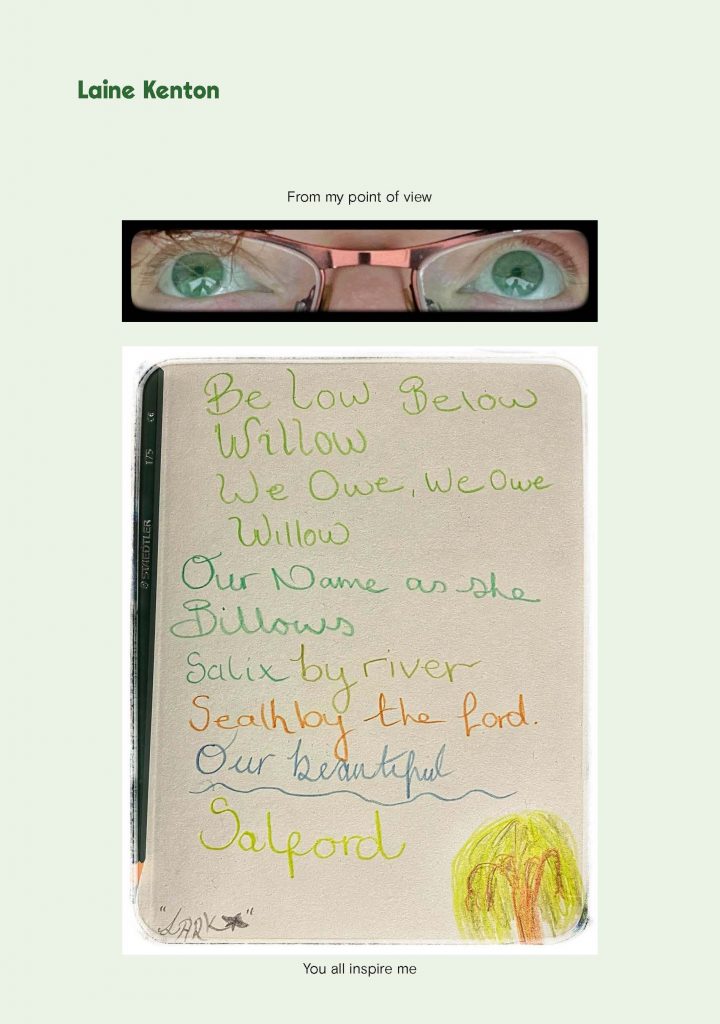 Laine Kenton
From my point of view
Be low Below
Willow
We Owe, We Owe
Willow
Our Name as she
Billows
Salix by river
Sealh by the ford.
Our beautiful
Salford
"LARK★"
STAEDTLER
You all inspire me